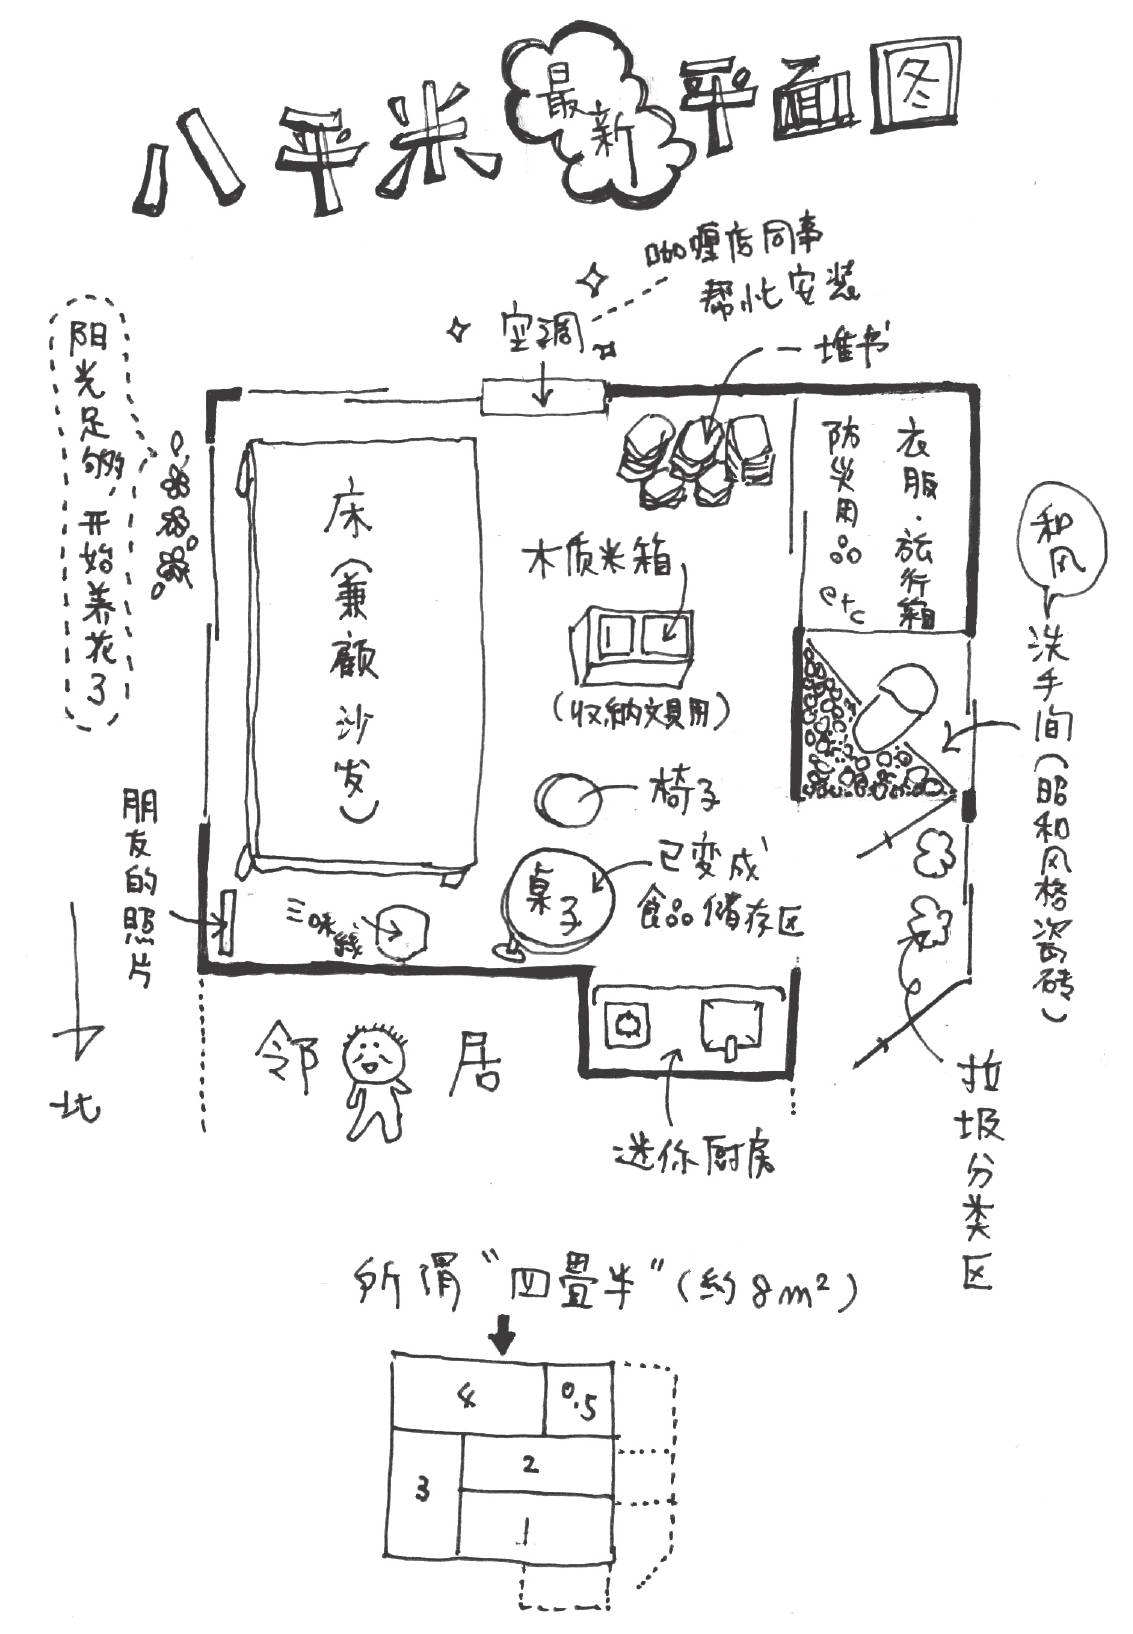 八平米最新平面图
咖喱店同事
帮忙安装
空调
一堆书
阳光足够,开始养花了
床(兼顾沙发)
木质米箱
(收纳文具用)
衣服·旅行箱
防灾用品
etc
和风
洗手间(昭和风格瓷砖)
椅子
桌子
已变成
食品储存区
朋友的照片
三味线
北
邻居
迷你厨房
垃圾分类区
所谓"四畳半"(約8m²)
4
0.5
3
2
1